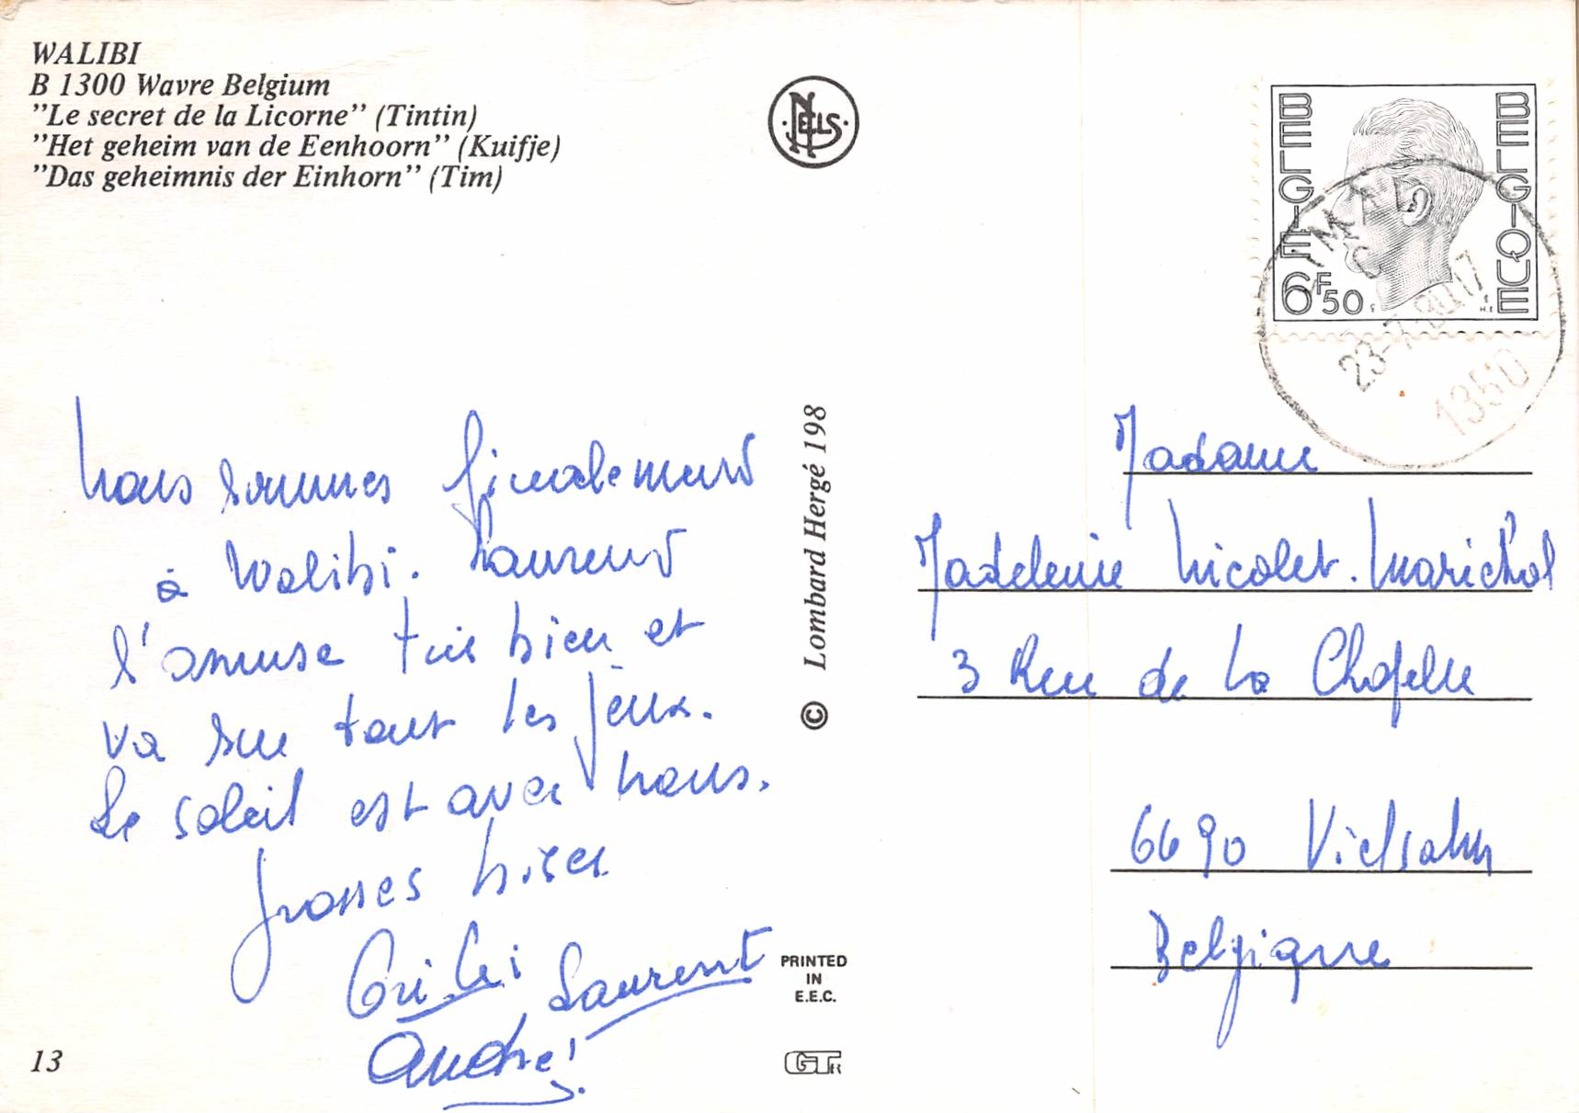 WALIBI
B 1300 Wavre Belgium
"Le secret de la Licorne" (Tintin)
"Het geheim van de Eenhoorn" (Kuifje)
"Das geheimnis der Einhorn" (Tim)
NELS
BELGIE
BELGIQUE
6F50
23-7-80 17
1350
nous sommes finalement
à Walibi. Laurent
s'amuse très bien et
va sur tout les jeux.
Le soleil est avec nous.
grosses bises
Laurent
André
© Lombard Hergé 198
Madame
Madeleine Nicolet-Marichal
3 Rue de La Chapelle
6690 Vielsalm
Belgique
PRINTED
IN
E.E.C.
13